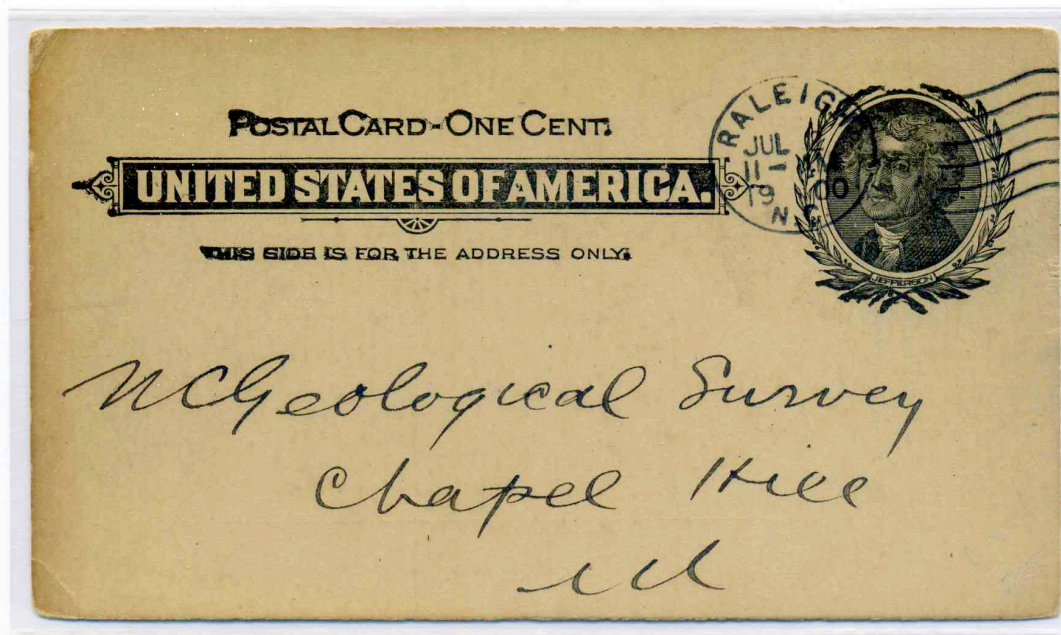 POSTAL CARD - ONE CENT.
UNITED STATES OF AMERICA.
THIS SIDE IS FOR THE ADDRESS ONLY.
RALEIGH
JUL
11 -
19 00
N.C.
JEFFERSON
NC Geological Survey
Chapel Hill
NC